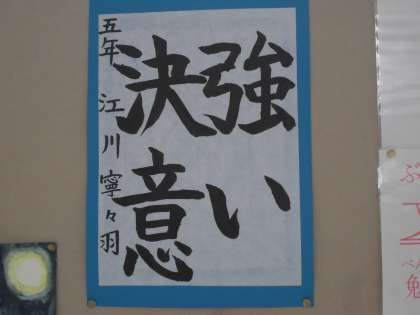 強い
決意
五年 江川寧々羽
ぶ
ベ
勉